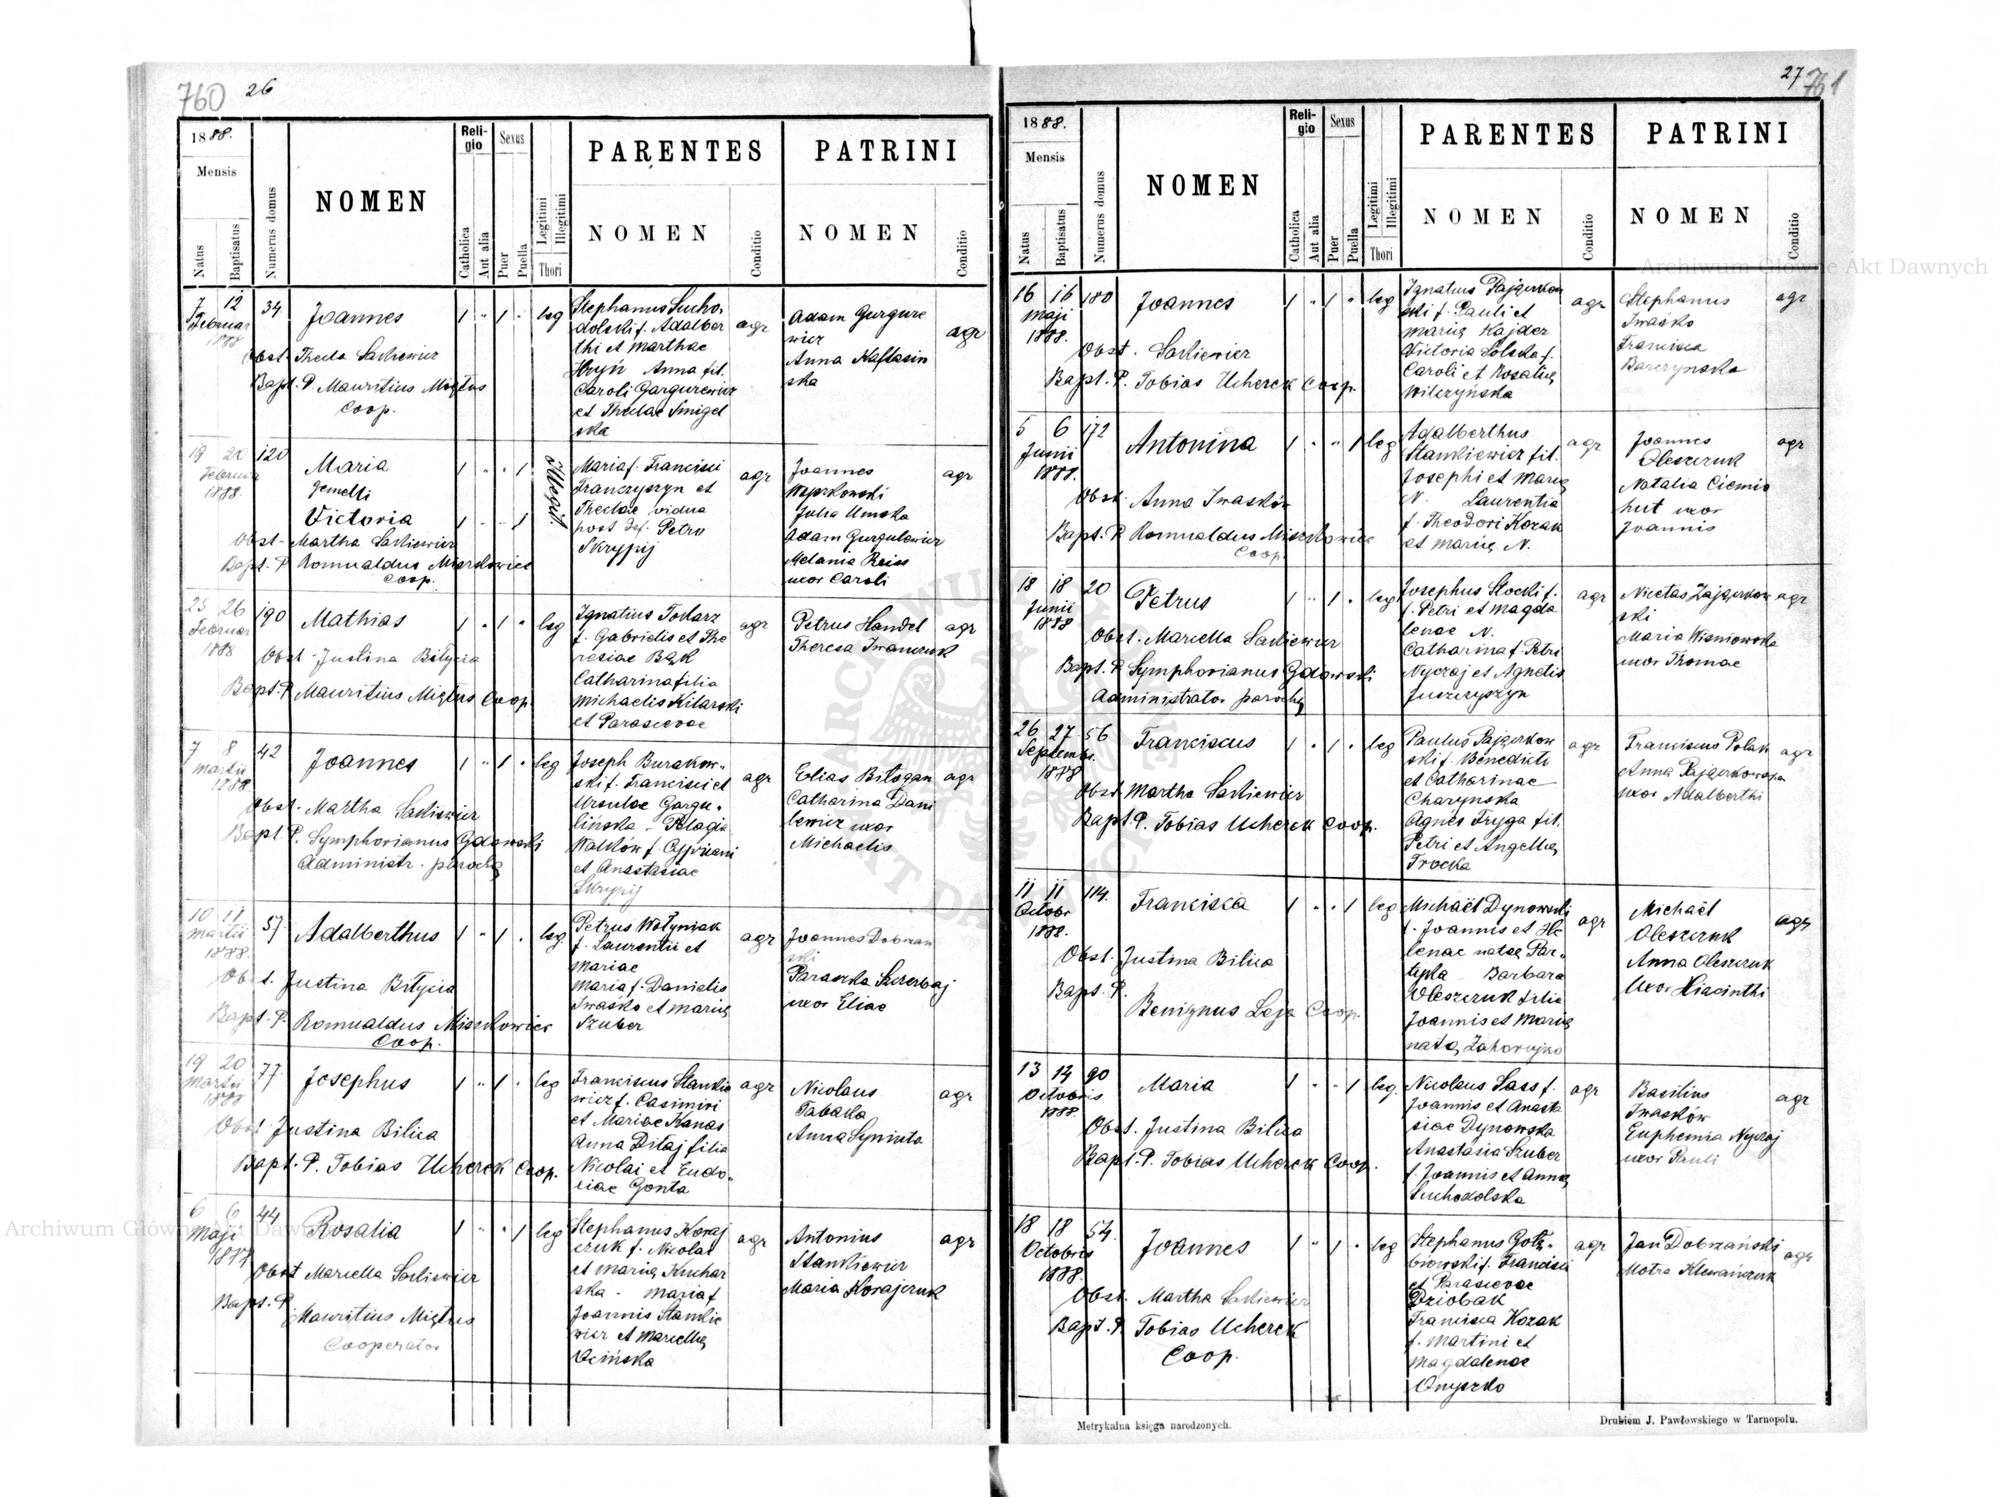 760 26
1888.
Mensis
Natus
Baptisatus
Numerus domus
NOMEN
Religio
Catholica
Aut alia
Sexus
Puer
Puella
Legitimi
Illegitimi
Thori
PARENTES
NOMEN
Conditio
PATRINI
NOMEN
Conditio
7 12 34 Joannes 1 " 1 " leg
Februar
1888
Obst. Thecla Sackiewicz
Bapt. P. Mauritius Miętus
Coop.
Stephanus Sucho-
dolski f. Adalber
thi et Marthae
Hryń Anna fil.
Caroli Gargurewicz
et Theclae Smigel
ska
agr
Adam Gurgure
wicz
Anna Kaftasin
ska
agr
19 21 120 Maria 1 " " 1 Illegit.
Februar
1888.
gemelli
Victoria 1 " " 1
Obst. Martha Sackiewicz
Bapt. P. Romualdus Mierzkowicz
Coop.
Maria f. Francisci
Franczyszyn et
Theclae vidua
post def. Petro
Skrypij
agr
Joannes
Julia Umska
Adam Gurgulewicz
Melania Reiss
uxor Caroli
agr
25 26 190 Mathias 1 " 1 " leg
Februar
1888
Obst. Justina Bilycia
Bapt. P. Mauritius Miętus Coop.
Ignatius Todarz
f. Gabrielis et The
resiae Bąk
Catharina filia
Michaelis Kitarski
et Parascevae
agr
Petrus Handel
Theresa Iwanczuk
agr
7 8 42 Joannes 1 " 1 " leg
Martii
1888
Obst. Martha Sackiewicz
Bapt. P. Symphorianus Gdowski
Administr. parochię
Joseph Burakow-
ski f. Francisci et
Ursulae Gargu-
lińska - Pelagia
Walków f. Cypriani
et Anastasiae
Skrypij
agr
Elias Bilogan
Catharina Dani
lewicz uxor
Michaelis
agr
10 11 57 Adalberthus 1 " 1 " leg
Martii
1888.
Obst. Justina Bilycia
Bapt. P. Romualdus Mierzkowicz
Coop.
Petrus Wołyniak
f. Laurentii et
Mariae
Maria f. Danielis
Iwasko et Marię
Szuber
agr
Joannes Dobrzan
ski
Paraszka Szczerbaj
uxor Eliae
19 20 77 Josephus 1 " 1 " leg
Martii
1888
Obst. Justina Bilica
Bapt. P. Tobias Ucherek Coop.
Franciscus Stankie
wicz f. Casimiri
et Mariae Kanas
Anna Ditaj filia
Nicolai et Eudo-
ciae Gonta
agr
Nicolaus
Tabaka
Anna Syninta
agr
6 6 44 Rosalia 1 " " 1 leg
Maji
1888
Obst Marcella Sackiewicz
Bapt. P.
Mauritius Miętus
Cooperator
Stephanus Koraj
czuk f. Nicolai
et Marię Kuchar
ska - Maria f
Joannis Stankie
wicz et Marcellę
Ocińska
agr
Antonius
Stankiewicz
Maria Korajczuk
agr
27 761
1888.
Mensis
Natus
Baptisatus
Numerus domus
NOMEN
Religio
Catholica
Aut alia
Sexus
Puer
Puella
Legitimi
Illegitimi
Thori
PARENTES
NOMEN
Conditio
PATRINI
NOMEN
Conditio
16 16 180 Joannes 1 " 1 " leg
Maji
1888.
Obst. Sackiewicz
Bapt. P. Tobias Ucherek Coop.
Ignatius Pajączkow
ski f. Pauli et
Marię Kajder
Victoria Solska f.
Caroli et Rosalię
Wilczyńska
agr
Stephanus
Iwaśko
Francisca
Barczynska
agr
5 6 172 Antonina 1 " " 1 leg
Junii
1888.
Obst. Anna Iwasków
Bapt. P. Romualdus Mierzkowicz
Coop.
Adalberthus
Stankiewicz fil.
Josephi et Marię
N. Laurentia
f. Theodori Kozak
et Marię N.
agr
Joannes
Oleszczuk
Natalia Ciemio
hut uxor
Joannis
agr
18 18 20 Petrus 1 " 1 " leg
Junii
1888
Obst. Marcella Sackiewicz
Bapt. P. Symphorianus Gdowski
Administrator parochię
Josephus Stocki f.
f. Petri et Magda
lenae N.
Catharina f. Petri
Nyczaj et Agnetis
Juszczyszyn
agr
Nicetas Zajączkow
ski
Maria Wisniowska
uxor Thomae
agr
26 27 56 Franciscus 1 " 1 " leg
Septembr.
1888
Obst. Martha Sackiewicz
Bapt. P. Tobias Ucherek Coop.
Paulus Pajączkow
ski f. Benedicti
et Catharinae
Charynska
Agnes Fryga fil.
Petri et Angellię
Trocka
agr
Franciscus Polak
Anna Pajączkowska
uxor Adalberthi
agr
11 11 114. Francisca 1 " " 1 leg
Octobr
1888.
Obst. Justina Bilica
Bapt. P.
Benignus Leja Coop.
Michaël Dynowski
f. Joannis et He
lenae natae Par-
tyka Barbara
Oleszczuk filia
Joannis et Marię
natę Zahorujko
agr
Michaël
Oleszczuk
Anna Oleszczuk
Uxor Hiacinthi
agr
13 14 90 Maria 1 " " 1 leg.
Octobris
1888.
Obst. Justina Bilica
Bapt. P. Tobias Ucherek Coop.
Nicolaus Sass f.
Joannis et Anasta
siae Dynowska
Anastasia Szuber
f. Joannis et Annę
Suchodolska
agr
Basilius
Iwasków
Euphemia Nyczaj
uxor Pauli
agr
18 18 54. Joannes 1 " 1 " leg
Octobris
1888.
Obst. Martha Sackiewicz
Bapt. P. Tobias Ucherek
Coop.
Stephanus Gołę-
biowski f. Francisci
et Parascevae
Dziobak
Francisca Kozak
f. Martini et
Magdalenae
Onyszko
agr
Jan Dobrzański
Motra Klewańczuk
agr
Metrykalna księga narodzonych.
Drukiem J. Pawłowskiego w Tarnopolu.
Archiwum Główne Akt Dawnych
Archiwum Główne Akt Dawnych
ARCHIWUM GŁÓWNE AKT DAWNYCH